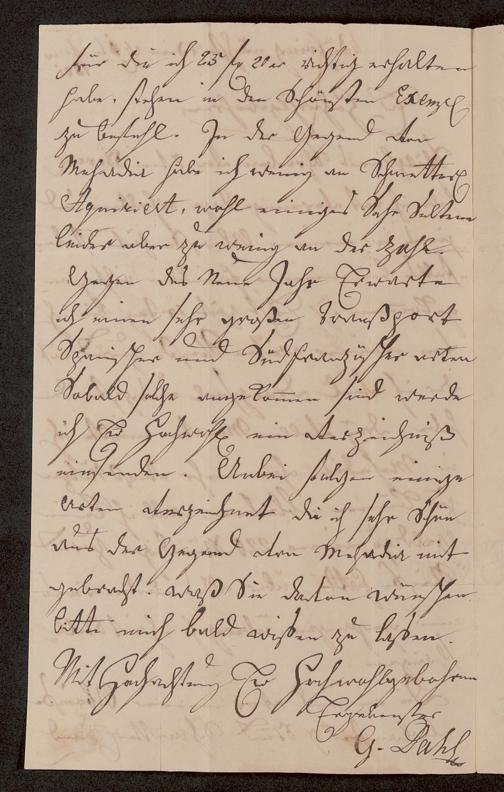 für die ich 25 f 20 xr richtig erhalten
habe, stehen in den Schönsten Exempl
zu befehl. In der Gegend von
Mehadia habe ich wenig an Schmetterl
Aquiriert, wohl einiges Sehr Seltene
leider aber zu wenig an der Zahl.
Gegen das Neue Jahr Erwarte
ich einen sehr großen Transport
Spanischer und Südfranzöscher arten
Sobald solche angekommen sind werde
ich Ew Hochwohl ein Verzeichniß
einsenden. Anbei folgen einige
Arten verzeichnet die ich sehr Schön
aus der Gegend von Mehadia mit
gebracht. waß Sie davon wünschen
bitte mich bald wißen zu laßen.
Mit Hochachtung Ew Hochwohlgebohrn
Ergebenster
G. Dahl